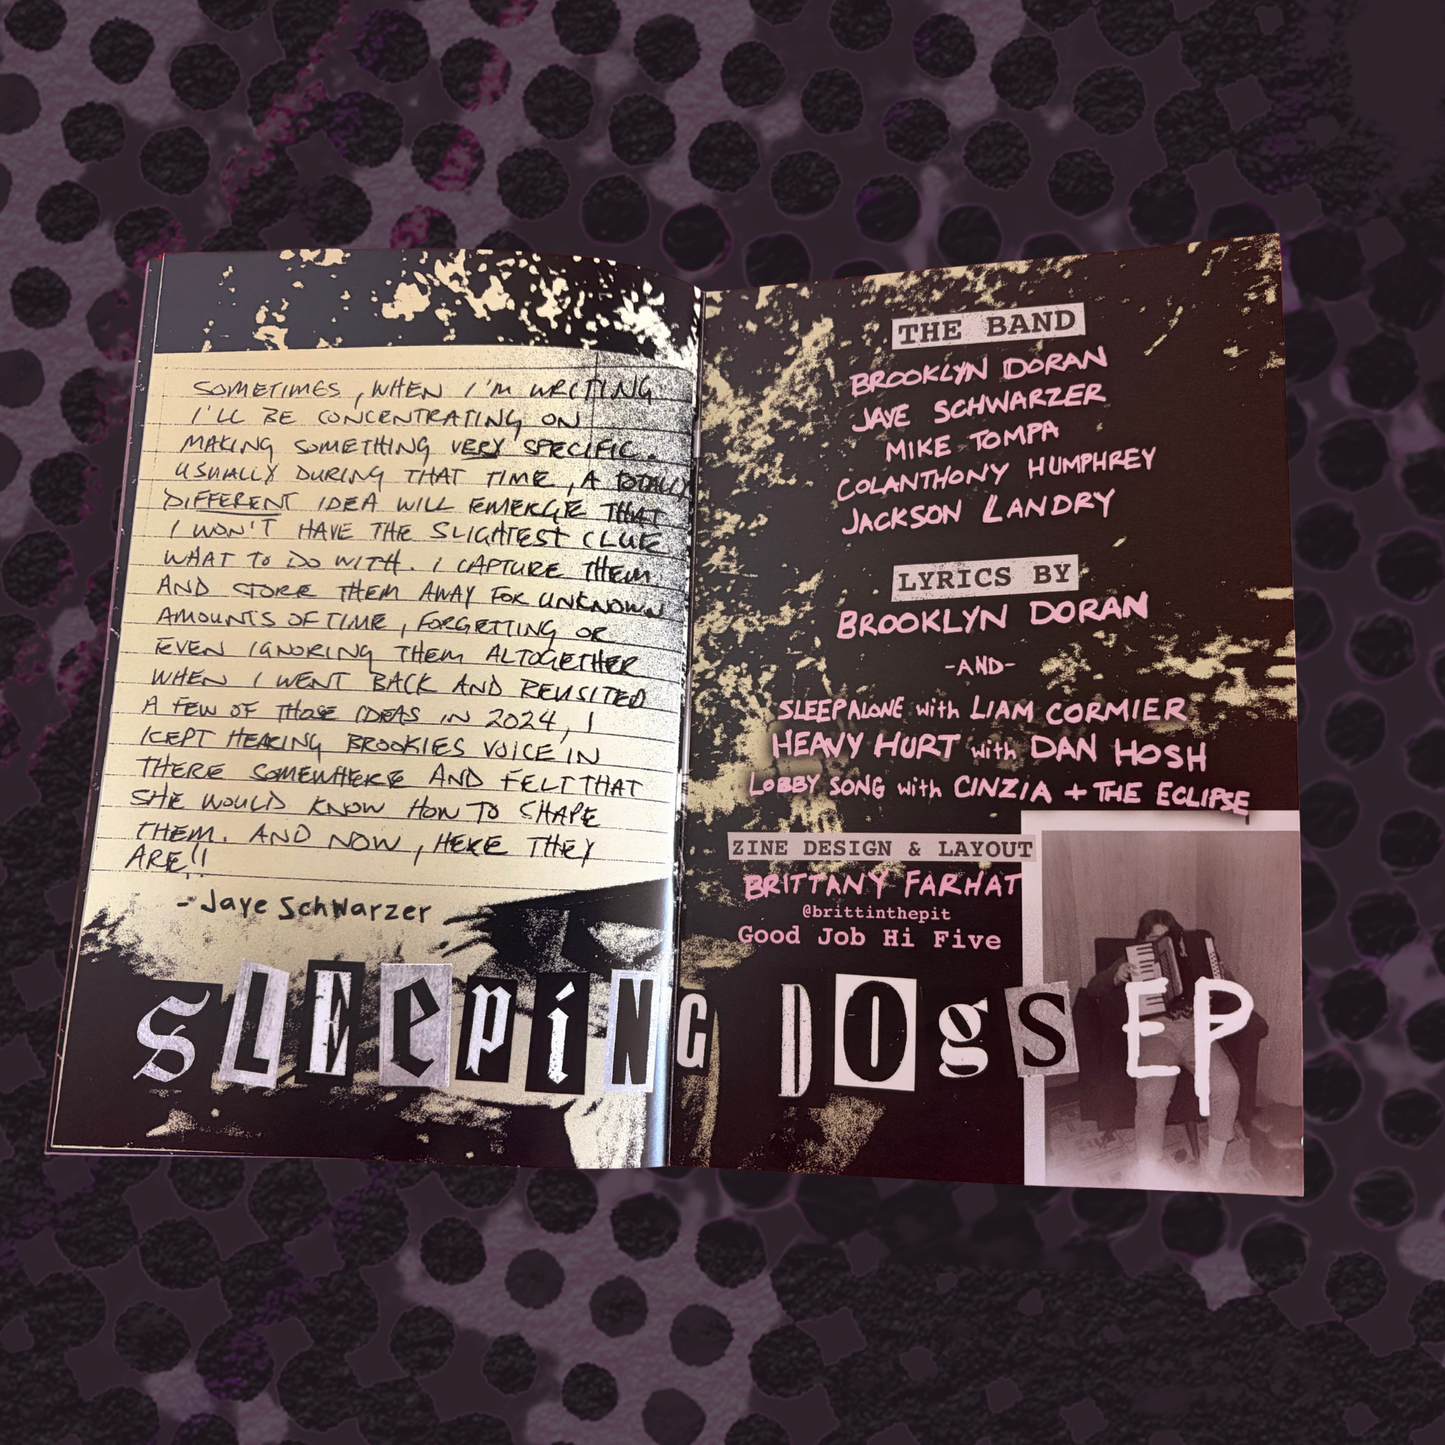 SOMETIMES, WHEN I'M WRITING
I'LL BE CONCENTRATING ON
MAKING SOMETHING VERY SPECIFIC.
USUALLY DURING THAT TIME, A TOTALLY
DIFFERENT IDEA WILL EMERGE THAT
I WON'T HAVE THE SLIGHTEST CLUE
WHAT TO DO WITH. I CAPTURE THEM
AND STORE THEM AWAY FOR UNKNOWN
AMOUNTS OF TIME, FORGETTING OR
EVEN IGNORING THEM ALTOGETHER
WHEN I WENT BACK AND REVISITED
A FEW OF THOSE IDEAS IN 2024, I
KEPT HEARING BROOKIES VOICE IN
THERE SOMEWHERE AND FELT THAT
SHE WOULD KNOW HOW TO SHAPE
THEM. AND NOW, HERE THEY
ARE!!
- Jaye Schwarzer
THE BAND
BROOKLYN DORAN
JAYE SCHWARZER
MIKE TOMPA
COLANTHONY HUMPHREY
JACKSON LANDRY
LYRICS BY
BROOKLYN DORAN
-AND-
SLEEPALONE with LIAM CORMIER
HEAVY HURT with DAN HOSH
LOBBY SONG with CINZIA + THE ECLIPSE
ZINE DESIGN & LAYOUT
BRITTANY FARHAT
@brittinthepit
Good Job Hi Five
SLEepiNG DOgS EP